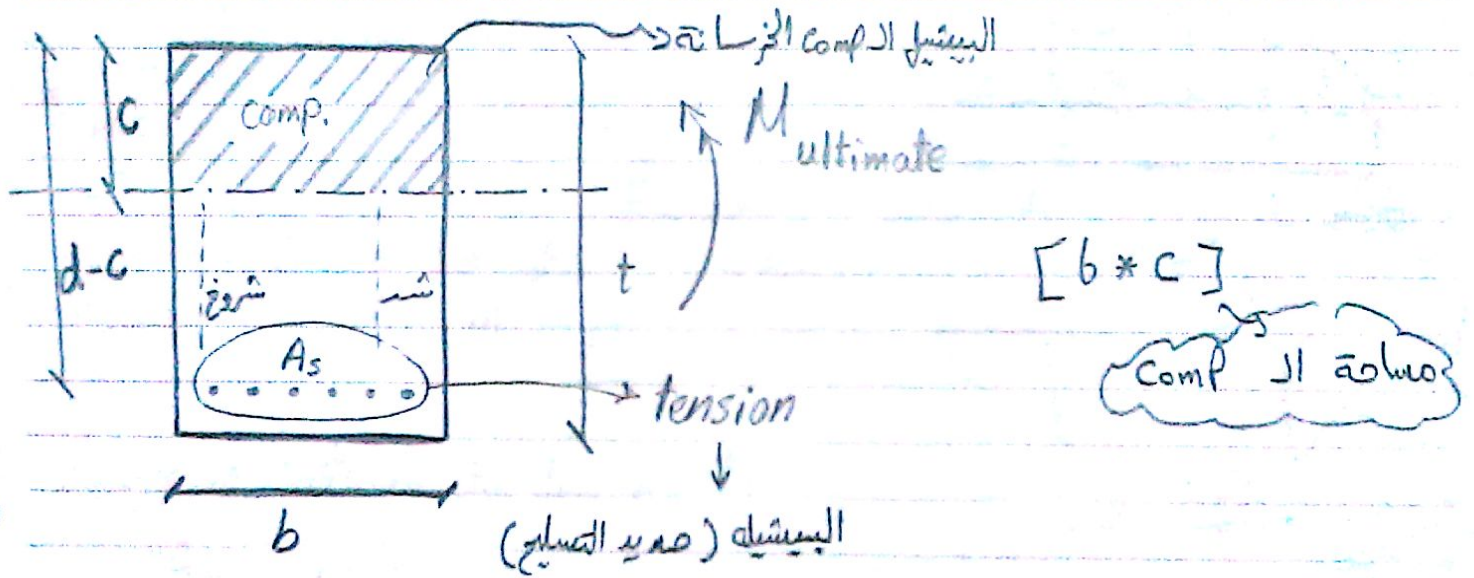 البيشيل الـ comp الخرسانة
C
comp.
M ultimate
d-c
t
[b * c]
شروخ
شد
As
مساحة الـ Comp
tension
b
البيشيله (حديد التسليح)